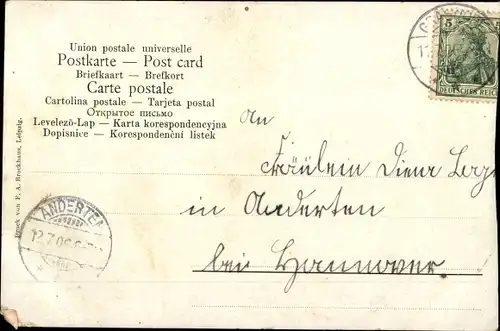 Union postale universelle
Postkarte — Post card
Briefkaart — Brefkort
Carte postale
Cartolina postale — Tarjeta postal
Открытое письмо
Levelező-Lap — Karta korespondencyjna
Dopisnice — Korespondenční lístek
Druck von F. A. Brockhaus, Leipzig.
5
DEUTSCHES REICH
An
Fräulein
in Anderten
bei Hannover
ANDERTEN
12.7.06